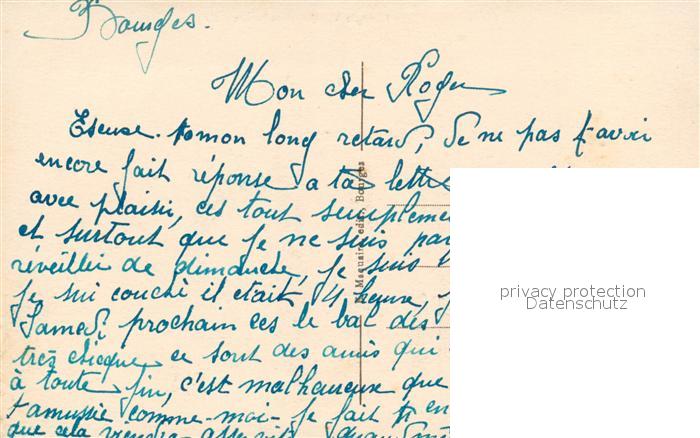 Bourges.
Mon cher Roger
Escuse. mon long retard, de ne pas t'avoir
encore fait réponse a ta lettre
avec plaisir, ces tout simplement
et surtout que je ne suis pas
réveillé de dimanche, je suis
je sui couché il etait 4 heure,
Samedi prochain ces le bal des
tres chicque ce sont des amis qui
à toute fin, c'est malhaureuse que
t'amussie comme-moi- je fait en
que cela viendra
M. Maquaire, édit., Bourges
privacy protection
Datenschutz